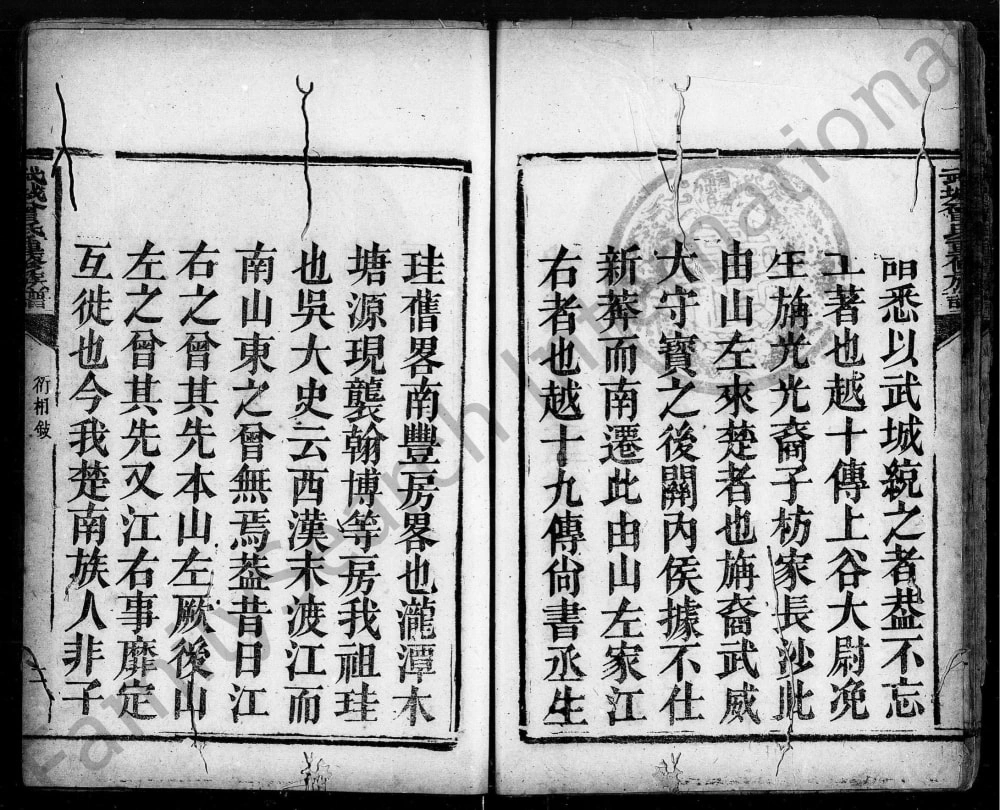 悉以武城統之者葢不忘
土著也越十傳上谷大尉浼
生旃光光裔子枋家長沙此
由山左來楚者也旃裔武威
大守寶之後關內侯據不仕
新莽而南遷此由山左家江
右者也越十九傳尙書丞生
珪舊畧南豐房畧也瀧潭木
塘源現襲翰博等房我祖珪
也吳大史云西漢末渡江而
南山東之曾無焉葢昔日江
右之曾其先本山左厥後山
左之曾其先又江右事靡定
互徙也今我楚南族人非子
衍相敍
FamilySearch International